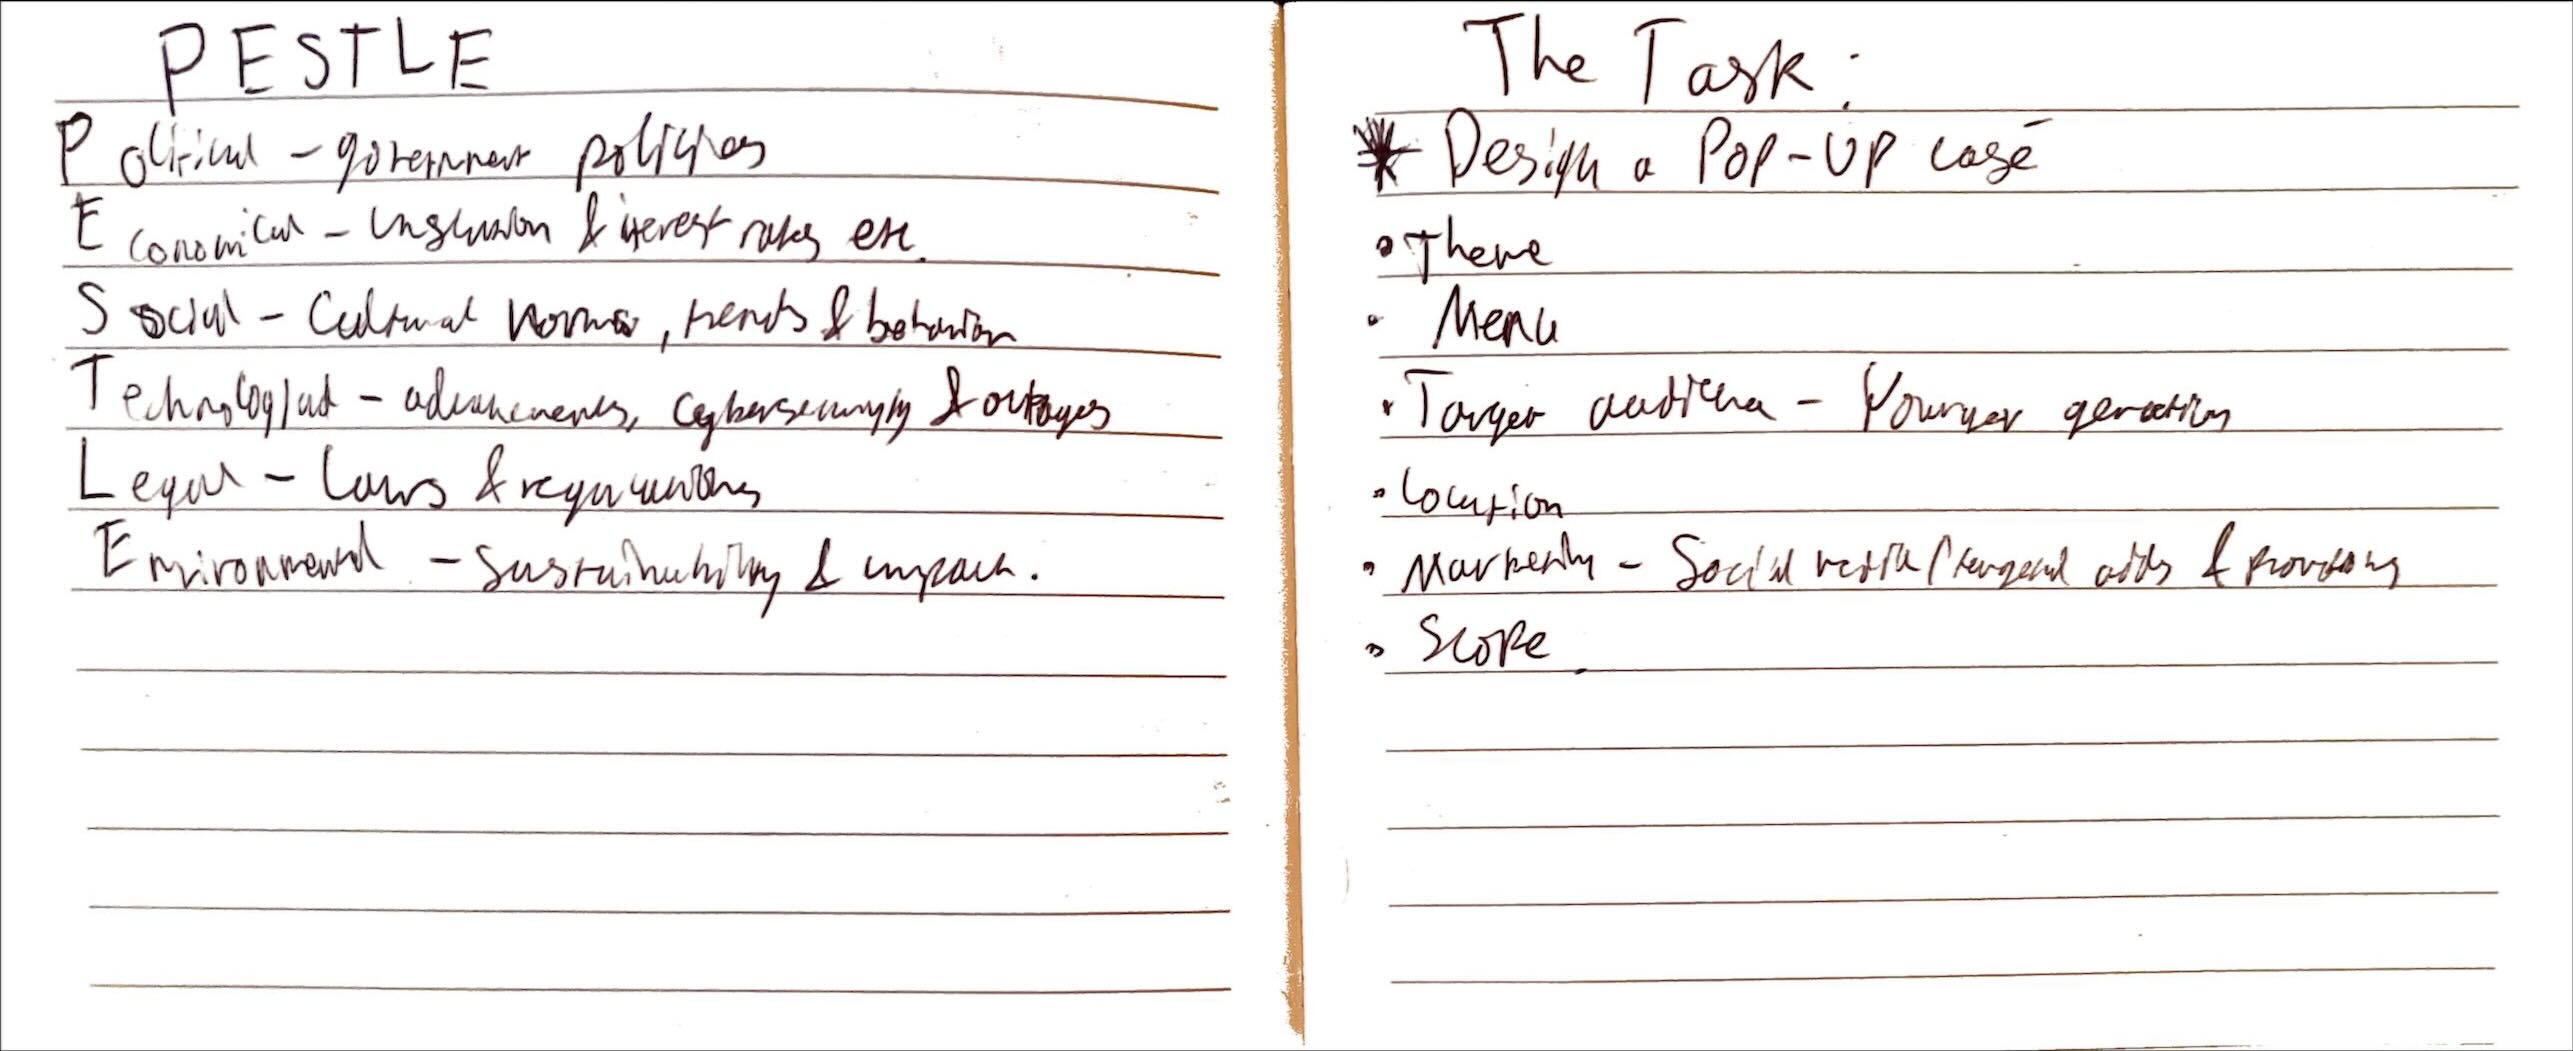 PESTLE
Political - government policies
Economical - inflation & interest rates etc.
Social - Cultural norms, trends & behavior
Technological - advancements, cybersecurity & outages
Legal - Laws & regulations
Environmental - sustainability & impact.
The Task:
* Design a Pop-Up café
• Theme
• Menu
• Target audience - Younger generation
• Location
• Marketing - Social media / targeted adds &
• Scope.